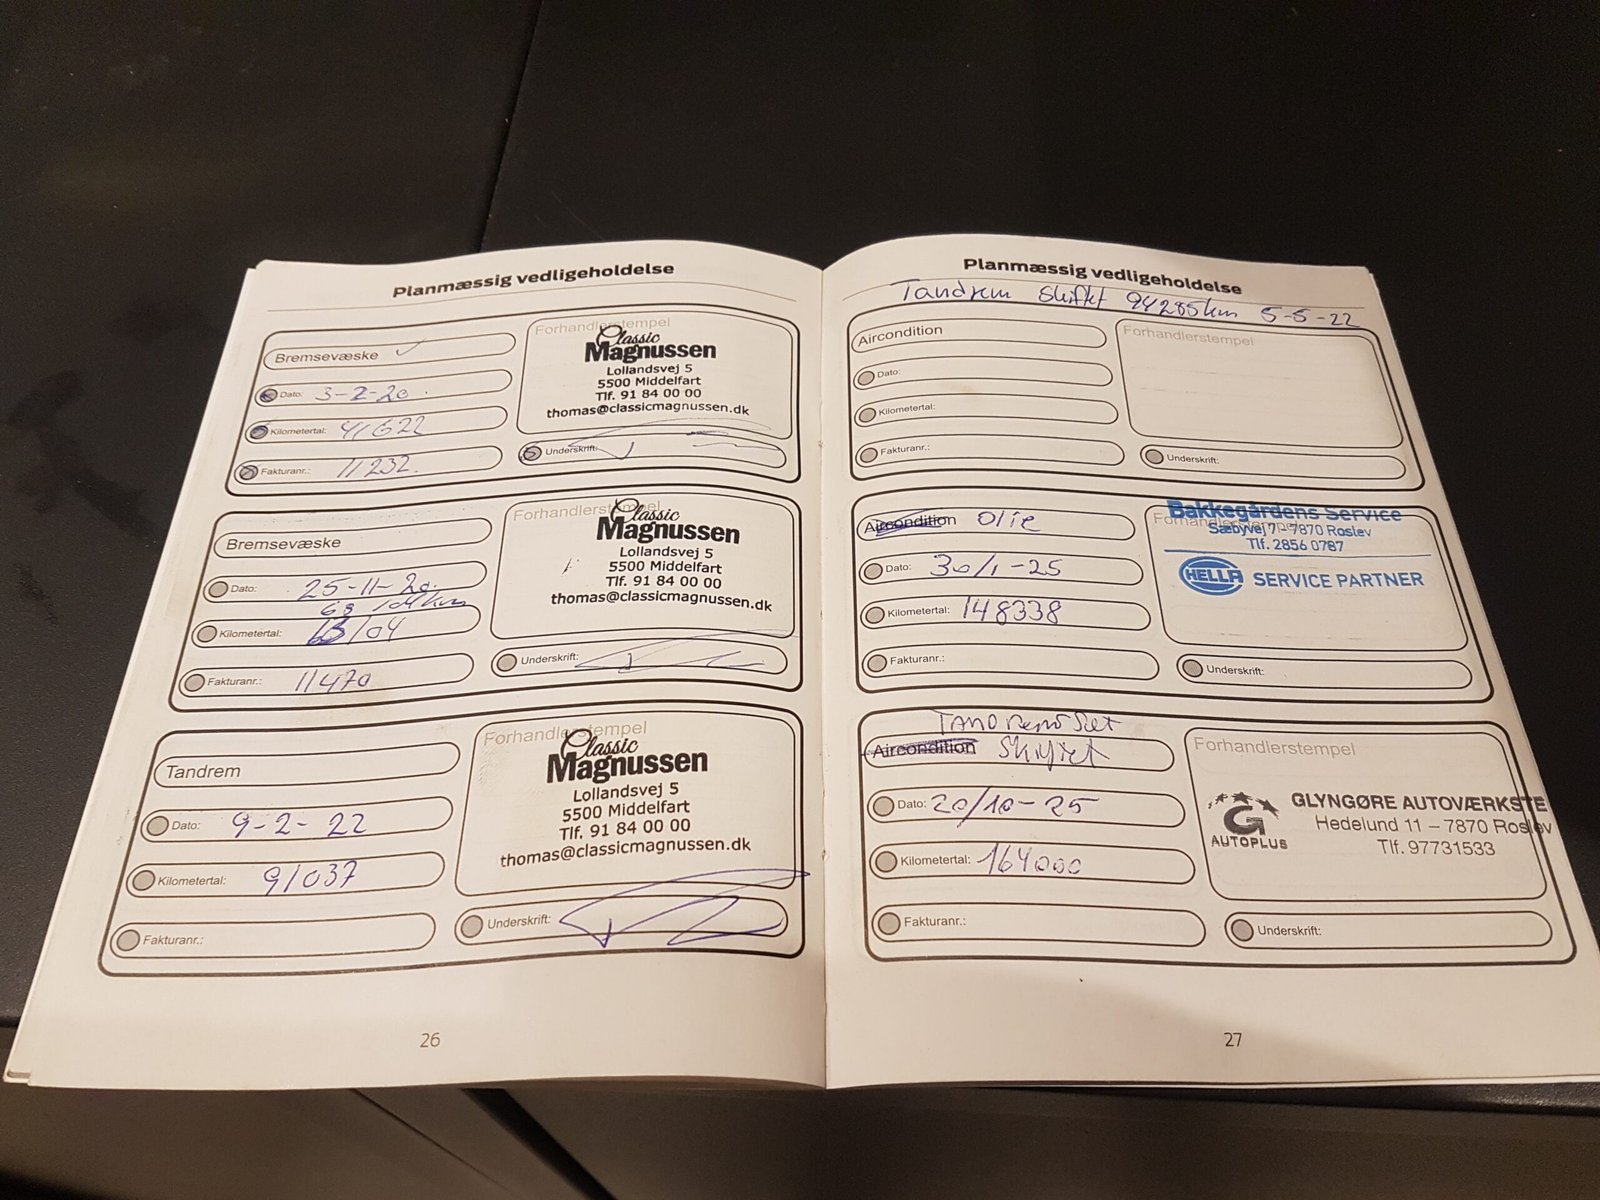 Planmæssig vedligeholdelse
Bremsevæske
Dato: 3-2-20
Kilometertal: 41622
Fakturanr.: 11232
Forhandlerstempel
Classic
Magnussen
Lollandsvej 5
5500 Middelfart
Tlf. 91 84 00 00
thomas@classicmagnussen.dk
Underskrift:
Bremsevæske
Dato: 25-11-20
68 104 km
Kilometertal: /04
Fakturanr.: 11470
Forhandlerstempel
Classic
Magnussen
Lollandsvej 5
5500 Middelfart
Tlf. 91 84 00 00
thomas@classicmagnussen.dk
Underskrift:
Tandrem
Dato: 9-2-22
Kilometertal: 91037
Fakturanr.:
Forhandlerstempel
Classic
Magnussen
Lollandsvej 5
5500 Middelfart
Tlf. 91 84 00 00
thomas@classicmagnussen.dk
Underskrift:
26
Planmæssig vedligeholdelse
Tandrem skiftet 94285km 5-5-22
Aircondition
Dato:
Kilometertal:
Fakturanr.:
Forhandlerstempel
Underskrift:
Aircondition Olie
Dato: 30/1-25
Kilometertal: 148338
Fakturanr.:
Forhandlerstempel
Bakkegårdens Service
Sæbyvej 7 - 7870 Roslev
Tlf. 2856 0787
HELLA SERVICE PARTNER
Underskrift:
TANDremsSæt
Aircondition Skiftet
Dato: 20/10-25
Kilometertal: 164000
Fakturanr.:
Forhandlerstempel
G
AUTOPLUS
GLYNGØRE AUTOVÆRKSTE
Hedelund 11 – 7870 Roslev
Tlf. 97731533
Underskrift:
27